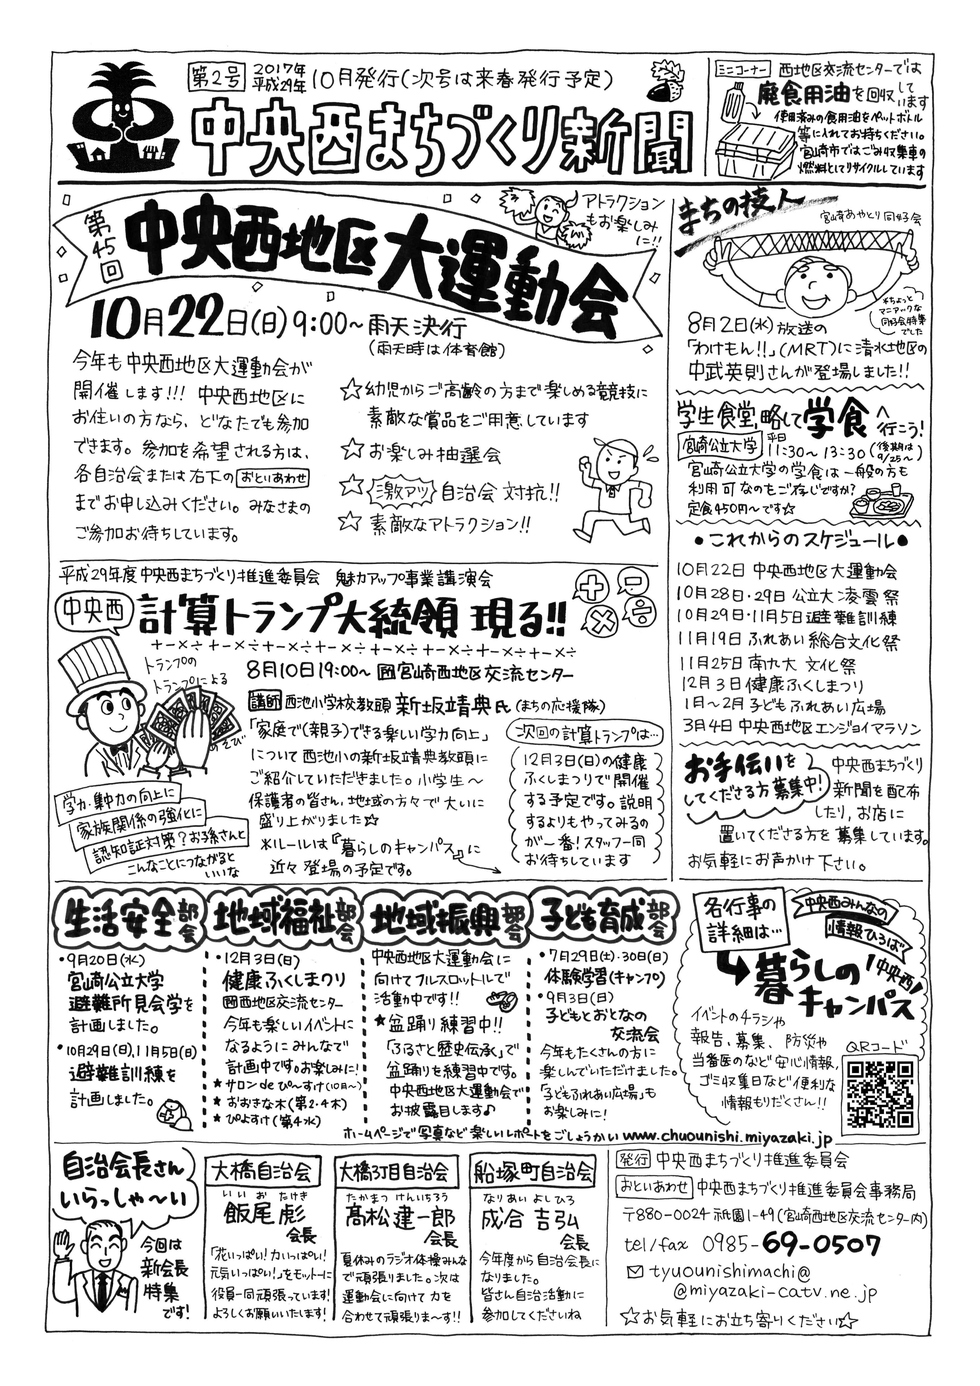 第2号
2017年
平成29年
10月発行(次号は来春発行予定)
中央西まちづくり新聞
ミニコーナー 西地区交流センターでは
廃食用油を回収しています
使用済みの食用油をペットボトル
等に入れてお持ちください。
宮崎市ではごみ収集車の
燃料としてリサイクルしています
第45回
中央西地区大運動会
アトラクション
もお楽しみ
に!!
10月22日(日)9:00~雨天決行
(雨天時は体育館)
今年も中央西地区大運動会が
開催します!!! 中央西地区に
お住いの方なら、どなたでも参加
できます。参加を希望される方は、
各自治会または右下のおといあわせ
までお申し込みください。みなさまの
ご参加お待ちしています。
☆幼児からご高齢の方まで楽しめる競技に
素敵な賞品をご用意しています
☆お楽しみ抽選会
☆激アツ自治会対抗!!
☆素敵なアトラクション!!
まちの技人
宮崎あやとり同好会
*ちょっと
マニアックな
同好会特集
でした
8月2日(水)放送の
「わけもん!!」(MRT)に清水地区の
中武英則さんが登場しました!!
学生食堂、略して学食へ
行こう!
宮崎公立大学
平日
11:30~13:30
(後期は
9/25~)
宮崎公立大学の学食は一般の方も
利用可なのもご存じですか?
定食450円~です☆
●これからのスケジュール●
10月22日 中央西地区大運動会
10月28日・29日 公立大 凌雲祭
10月29日・11月5日避難訓練
11月19日 ふれあい総合文化祭
11月25日 南九大 文化祭
12月3日健康ふくしまつり
1月~2月子どもふれあい広場
3月4日中央西地区エンジョイマラソン
お手伝いを
してくださる方募集中!
中央西まちづくり
新聞を配布
したり、お店に
置いてくださる方を募集しています。
お気軽にお声かけ下さい。
平成29年度中央西まちづくり推進委員会 魅力アップ事業講演会
中央西
計算トランプ大統領現る!!
+-×÷+-×÷+-×÷+-×÷+-×÷+-×÷
トランプの
トランプによる
あそび
8月10日19:00~ 宮崎西地区交流センター
講師 西池小学校教頭 新坂靖典氏(まちの応援隊)
「家庭で(親子)できる楽しい学力向上」
について西池小の新坂靖典教頭に
ご紹介していただきました。小学生~
保護者の皆さん、地域の方々で大いに
盛り上がりました☆
※ルールは『暮らしのキャンパス』に
近々登場の予定です。
学力・集中力の向上に
家族関係の強化に
認知証対策?お子孫さんと
こんなことにつながると
いいな
次回の計算トランプは…
12月3日(日)の健康
ふくしまつりで開催
する予定です。説明
するよりもやってみるの
が一番!スタッフ一同
お待ちしています
生活安全部会
・9月20日(水)
宮崎公立大学
避難所見会学を
計画しました。
・10月29日(日),11月5日(日)
避難訓練を
計画しました。
地域福祉部会
・12月3日(日)
健康ふくしまのり
西地区交流センター
今年も楽しいイベントに
なるようにみんなで
計画中です。お楽しみに!
★サロンdeぴんすけ(10月~)
★おおきな木(第2・4木)
★ぴよすけ(第4水)
地域振興部会
中央西地区大運動会に
向けてフルスロットルで
活動中です!!
★盆踊り練習中!!
「ふるさと歴史伝承」で
盆踊りを練習中です。
中央西地区大運動会で
お披露目します♪
子ども育成部会
・7月29日(土)・30日(日)
体験学習(キャンプ)
・9月3日(日)
子どもとおとなの
交流会
今年もたくさんの方に
楽しんでいただけました。
「子どもふれあい広場」も
お楽しみに!
各行事の
詳細は…
中央西みんなの
情報ひろば
暮らしの
キャンパス
中央西!
イベントのチラシや
報告、募集、防災や
当番医のなど安心情報、
ゴミ収集日など便利な
情報もりだくさん!!
QRコード
ホームページで写真など楽しいレポートをごしょうかい www.chuounishi.miyazaki.jp
自治会長さん
いらっしゃ~い
今回は
新会長
特集
です!
大橋自治会
いいお たけき
飯尾 彪
会長
「花いっぱい!力いっぱい!
元気いっぱい!」をモットーに
役員一同頑張っています!
よろしくお願いいたします!
大橋3丁目自治会
たかまつ けんいちろう
髙松建一郎
会長
夏休みのラジオ体操みんな
で頑張りました。次は
運動会に向けて力を
合わせて頑張りま~す!!
船塚町自治会
なりあい よしひろ
成合 吉弘
会長
今年度から自治会長に
なりました。
皆さん自治活動に
参加してくださいね
発行 中央西まちづくり推進委員会
おといあわせ 中央西まちづくり推進委員会事務局
〒880-0024 祇園1-49(宮崎西地区交流センター内)
tel/fax 0985-69-0507
tyuounishimachi@
@miyazaki-catv.ne.jp
☆お気軽にお立ち寄りください☆